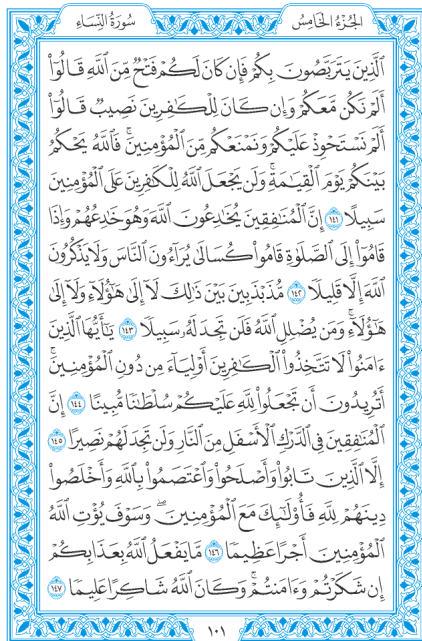 سُورَةُ النِّسَاءِ الجُزْءُ الخَامِسُ
ٱلَّذِينَ يَتَرَبَّصُونَ بِكُمْ فَإِن كَانَ لَكُمْ فَتْحٌ مِّنَ ٱللَّهِ قَالُوٓا۟
أَلَمْ نَكُن مَّعَكُمْ وَإِن كَانَ لِلْكَٰفِرِينَ نَصِيبٌ قَالُوٓا۟
أَلَمْ نَسْتَحْوِذْ عَلَيْكُمْ وَنَمْنَعْكُم مِّنَ ٱلْمُؤْمِنِينَ ۚ فَٱللَّهُ يَحْكُمُ
بَيْنَكُمْ يَوْمَ ٱلْقِيَٰمَةِ ۗ وَلَن يَجْعَلَ ٱللَّهُ لِلْكَٰفِرِينَ عَلَى ٱلْمُؤْمِنِينَ
سَبِيلًا ١٤١ إِنَّ ٱلْمُنَٰفِقِينَ يُخَٰدِعُونَ ٱللَّهَ وَهُوَ خَٰدِعُهُمْ وَإِذَا
قَامُوٓا۟ إِلَى ٱلصَّلَوٰةِ قَامُوا۟ كُسَالَىٰ يُرَآءُونَ ٱلنَّاسَ وَلَا يَذْكُرُونَ
ٱللَّهَ إِلَّا قَلِيلًا ١٤٢ مُّذَبْذَبِينَ بَيْنَ ذَٰلِكَ لَآ إِلَىٰ هَٰٓؤُلَآءِ وَلَآ إِلَىٰ
هَٰٓؤُلَآءِ ۚ وَمَن يُضْلِلِ ٱللَّهُ فَلَن تَجِدَ لَهُۥ سَبِيلًا ١٤٣ يَٰٓأَيُّهَا ٱلَّذِينَ
ءَامَنُوا۟ لَا تَتَّخِذُوا۟ ٱلْكَٰفِرِينَ أَوْلِيَآءَ مِن دُونِ ٱلْمُؤْمِنِينَ ۚ
أَتُرِيدُونَ أَن تَجْعَلُوا۟ لِلَّهِ عَلَيْكُمْ سُلْطَٰنًا مُّبِينًا ١٤٤ إِنَّ
ٱلْمُنَٰفِقِينَ فِى ٱلدَّرْكِ ٱلْأَسْفَلِ مِنَ ٱلنَّارِ وَلَن تَجِدَ لَهُمْ نَصِيرًا ١٤٥
إِلَّا ٱلَّذِينَ تَابُوا۟ وَأَصْلَحُوا۟ وَٱعْتَصَمُوا۟ بِٱللَّهِ وَأَخْلَصُوا۟
دِينَهُمْ لِلَّهِ فَأُو۟لَٰٓئِكَ مَعَ ٱلْمُؤْمِنِينَ ۖ وَسَوْفَ يُؤْتِ ٱللَّهُ
ٱلْمُؤْمِنِينَ أَجْرًا عَظِيمًا ١٤٦ مَّا يَفْعَلُ ٱللَّهُ بِعَذَابِكُمْ
إِن شَكَرْتُمْ وَءَامَنتُمْ ۚ وَكَانَ ٱللَّهُ شَاكِرًا عَلِيمًا ١٤٧
١٠١